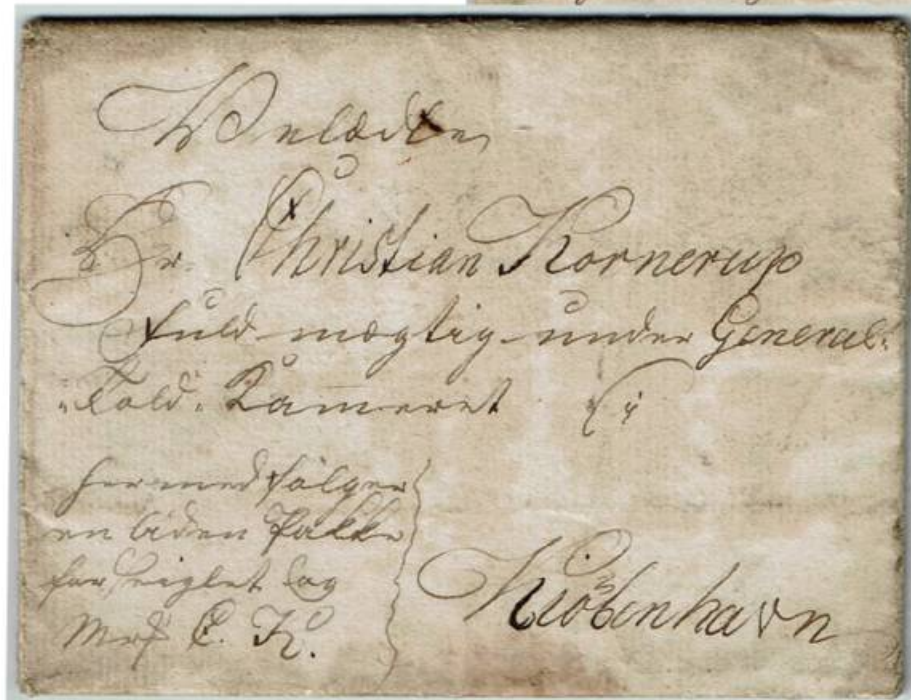 Velædle
Hr. Christian Kornerup
fuldmægtig under General-
"Told" Kameret i
hermed følger
en liden Pakke
forseiglet og
Mrk C. K.
Kiøbenhavn